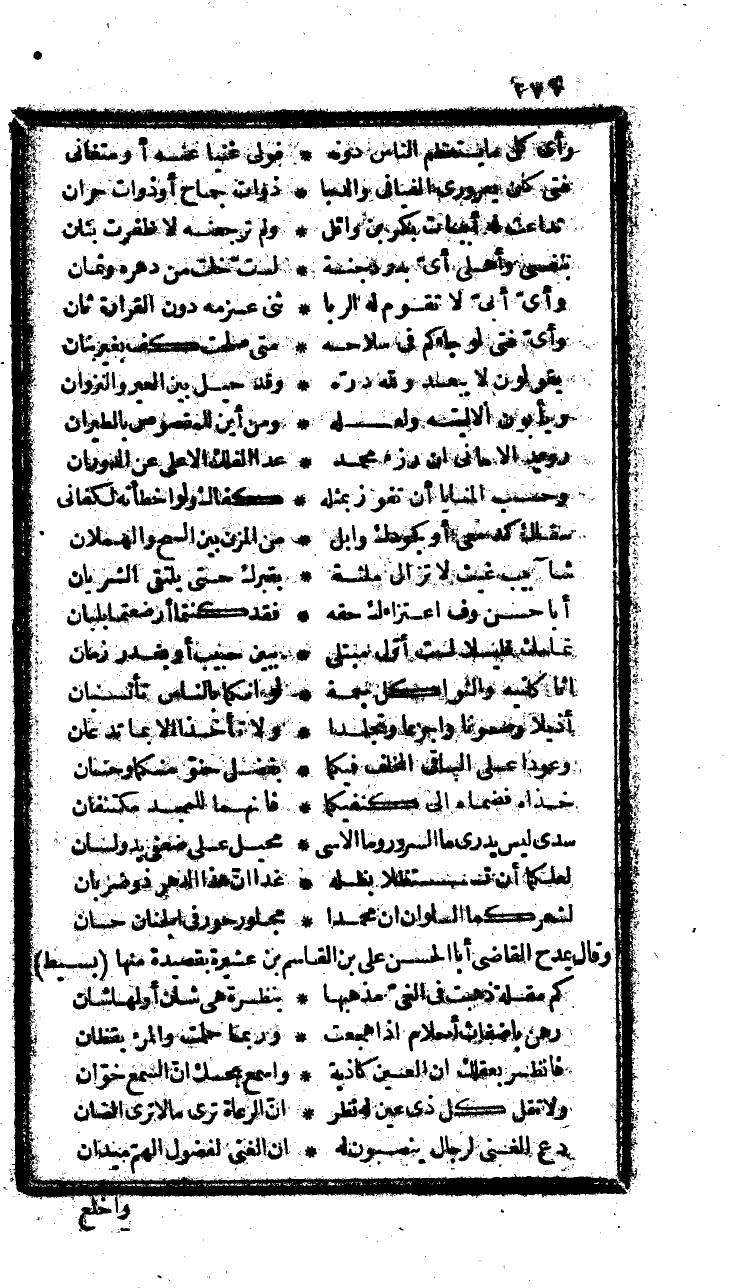 ٢٧٧
وأى كل ما يستعظم الناس دونه * فولى غنيا عنه أو متغانى
فتى كان يعرورى الفيافى والدجا * ذوات جماح أو ذوات حران
تداعت له أبيات بكر بن وائل * ولم ترجعنه لا ظفرت بثان
بنفسى وأهلى أى بدر دجنة * لست خلت من دهره وثمان
وأى أبى لا تقوم له الربا * ثنى عزمه دون القرانة ثان
وأى فتى لو جاءكم فى سلاحه * متى صلحت كف بغير بنان
يقولون لا يبعد ولله دره * وقد حيل بين العير والنزوان
ويأبون الا ليته ولعله * ومن أين للمقصوص بالطيران
رويد الامانى ان رزء محمد * عدا الفلك الاعلى عن الدوران
وحسب المنايا أن تفوز بمثله * كفاك ولو أخطأته لكفانى
سقاك كدمعى أو كجودك وابل * من المزن بين السح والهملان
شآبيب غيث لا تزال ملثة * بقبرك حتى يلتقى الثريان
أبا حسن وف اعتزاءك حقه * فقد كنتما أرضعتما بلبان
تماسك قليلا لست أول مبتلى * ببين حبيب أو بغدر زمان
أثاكلتيه والثواكل جمة * لو انكما بالناس تأتسيان
أذيلا وصونا واجزعا وتجلدا * ولا تأخذا الا بما تدعان
وعودا على الباقى المخلف فيكما * بفضل حنو منكما وحنان
خذاه فضماه الى كنفيكما * فانهما للمجد مكتنفان
سدى ليس يدرى ما السرور وما الاسى * محيل على ضعفى يد ولسان
لعلكما أن تستظلا بظله * غدا ان هذا الدهر ذو ضربان
لشعركما السلوان ان محمدا * مجاور حور فى الجنان حسان
وقال يمدح القاضى أبا الحسن على بن القاسم بن عشيرة بقصيدة منها (بسيط)
كم مقلة ذهبت فى الغى مذهبها * بنظرة هى شان أو لها شان
رهن بأضغاث أحلام اذا هجعت * وربما حلمت والمرء يقظان
فانظر بعقلك ان العين كاذبة * واسمع بحسك ان السمع خوان
ولا تقل كل ذى عين له نظر * ان الرعاة ترى مالا ترى الضان
دع الغنى لرجال ينصبون له * ان الغنى لفضول الهم ميدان
واخلع